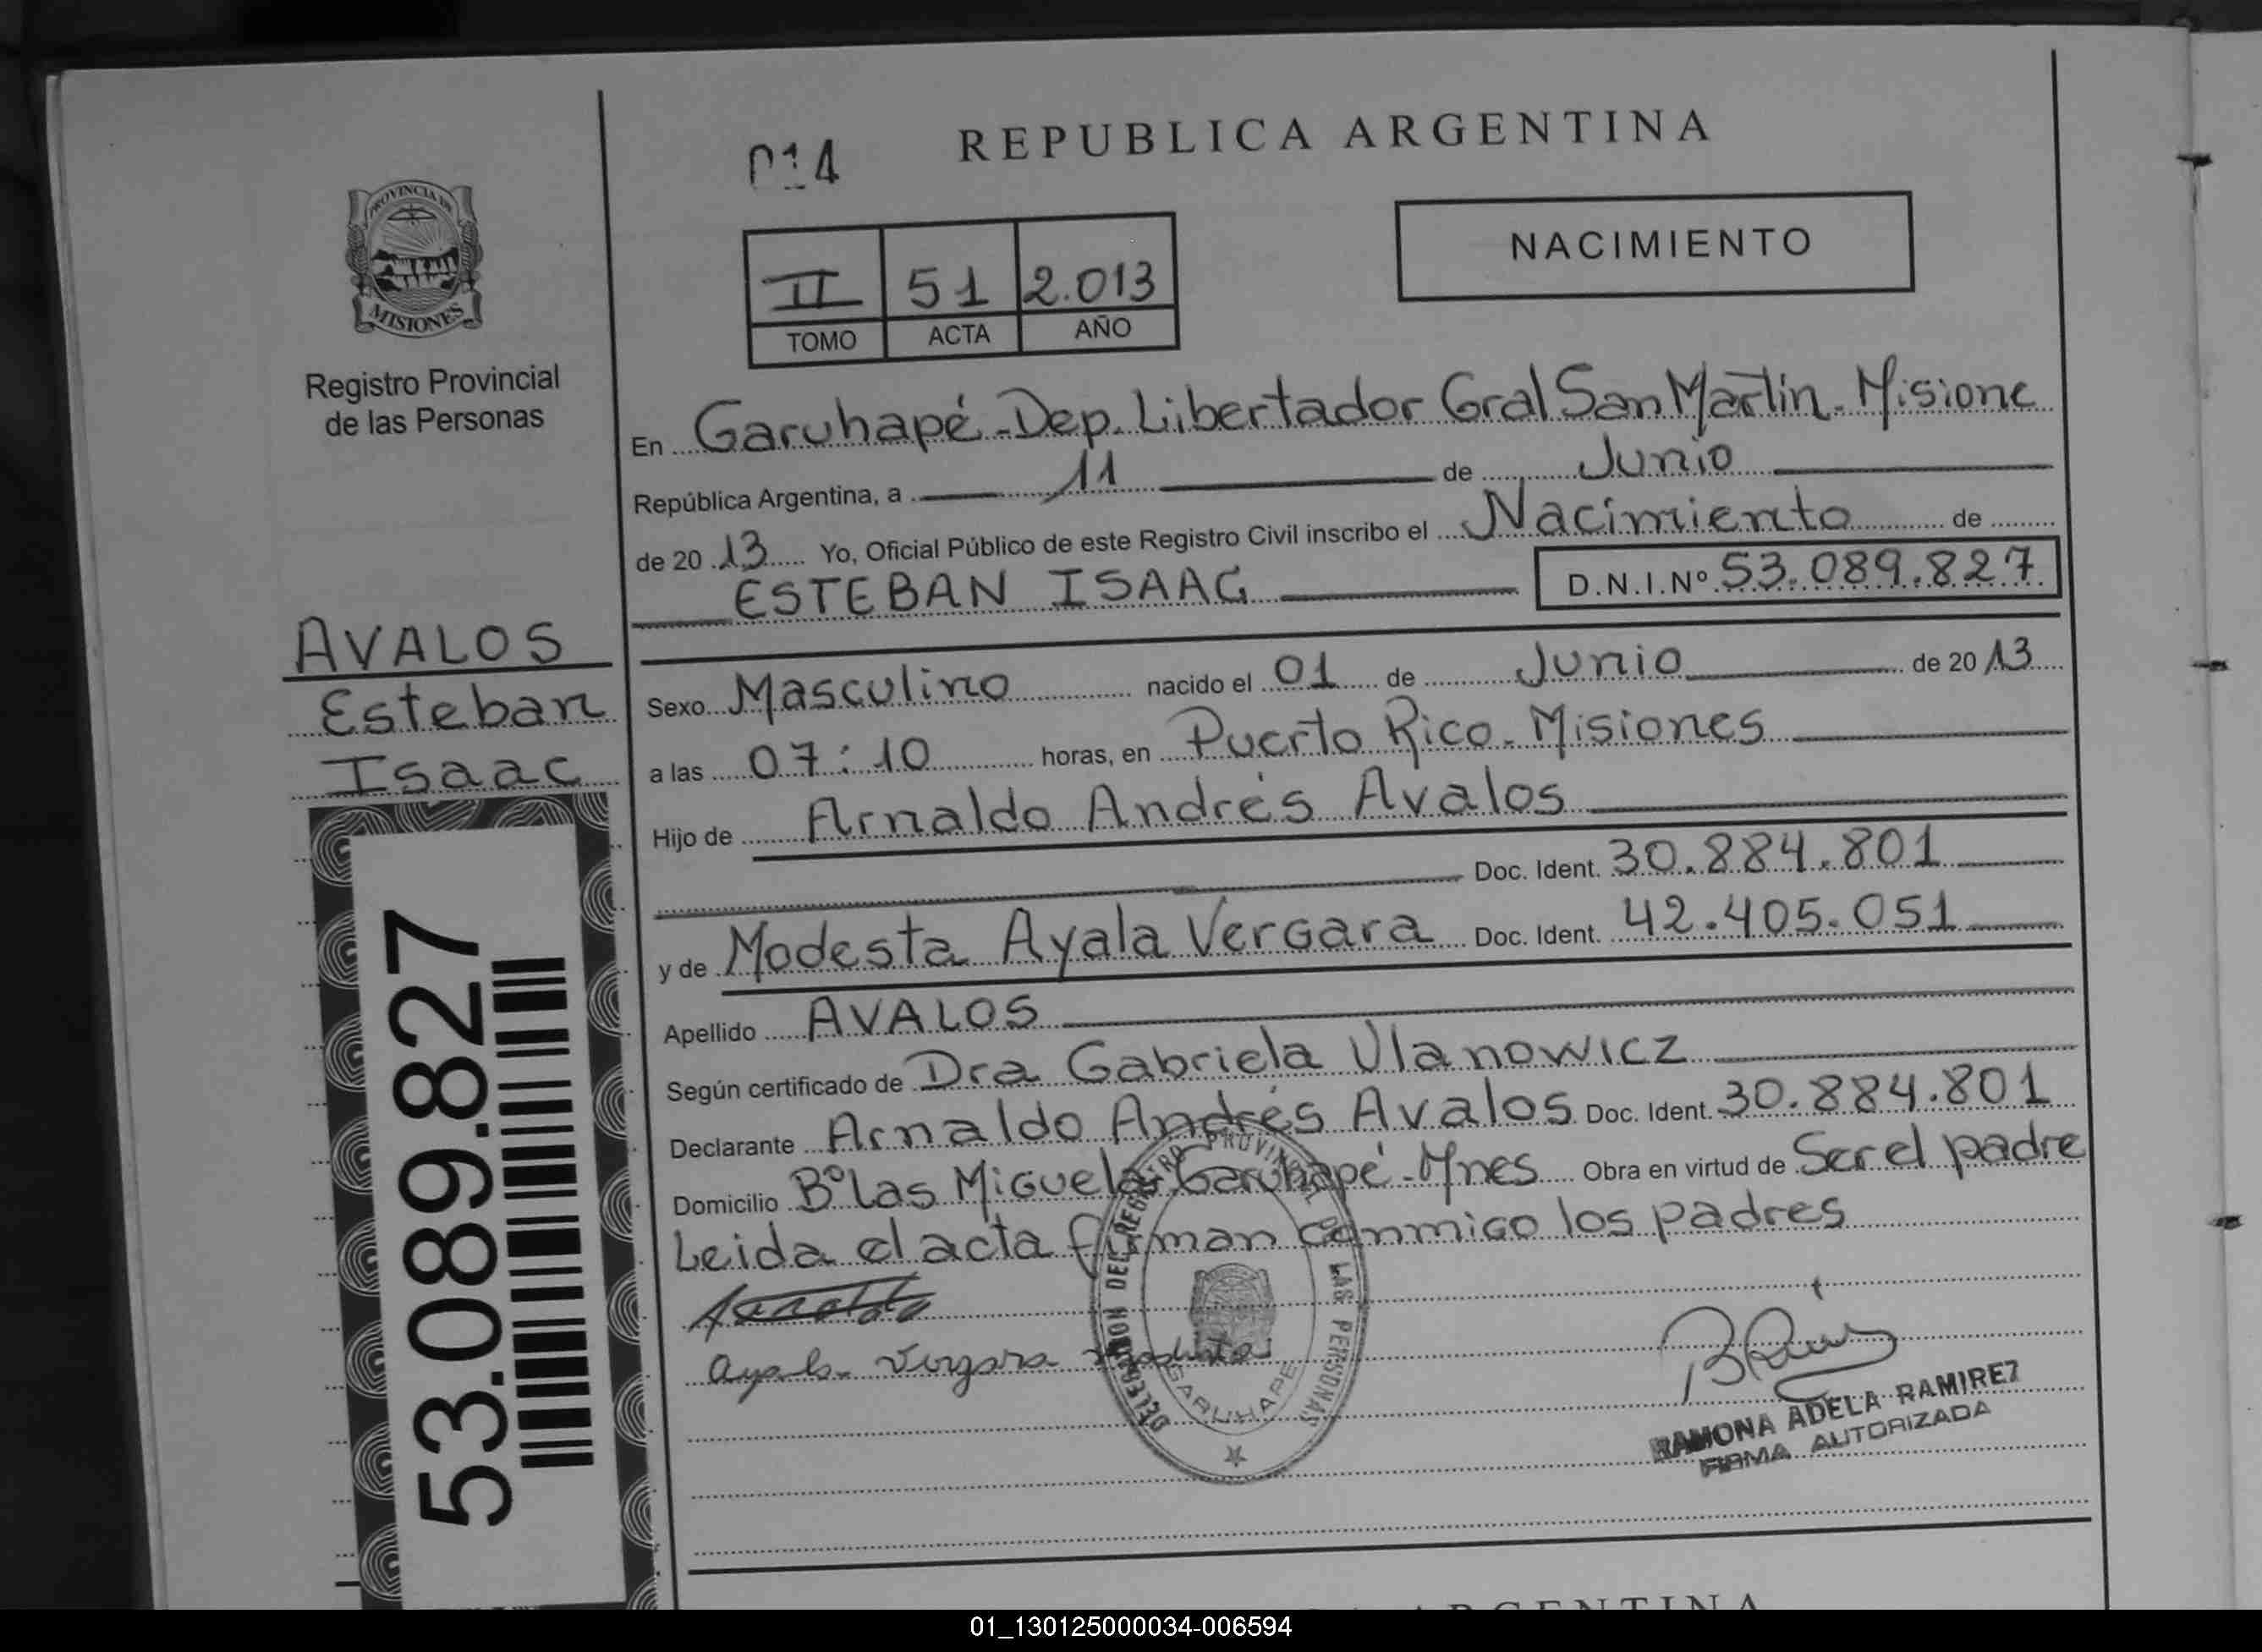 014
REPUBLICA ARGENTINA
PROVINCIA DE
MISIONES
Registro Provincial
de las Personas
NACIMIENTO
II 51 2.013
TOMO ACTA AÑO
En Garuhapé-Dep. Libertador Gral San Martín-Misione
República Argentina, a 11 de Junio
de 2013 Yo, Oficial Público de este Registro Civil inscribo el Nacimiento de
ESTEBAN ISAAC D.N.I.Nº 53.089.827
AVALOS
Esteban
Isaac
Sexo Masculino nacido el 01 de Junio de 2013
a las 07:10 horas, en Puerto Rico-Misiones
Hijo de Arnaldo Andrés Avalos
Doc. Ident. 30.884.801
y de Modesta Ayala Vergara Doc. Ident. 42.405.051
Apellido AVALOS
Según certificado de Dra Gabriela Ulanowicz
Declarante Arnaldo Andrés Avalos Doc. Ident. 30.884.801
Domicilio Bº Las Miguelas Garuhapé-Mnes Obra en virtud de Ser el padre
Leida el acta firman conmmigo los padres
53.089.827
Ayala Vergara Modesta
DEL REGISTRO PROVINCIAL DE LAS PERSONAS
GARUHAPE
RAMONA ADELA RAMIREZ
FIRMA AUTORIZADA
ARGENTINA
01_130125000034-006594